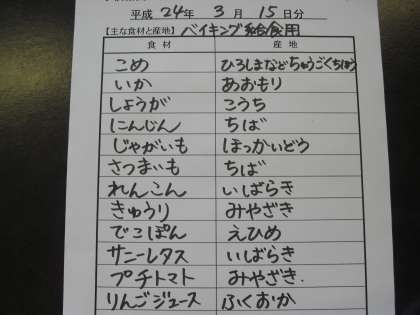 平成 24年 3月 15日分
【主な食材と産地】 バイキング給食用
食材 産地
こめ ひろしまなどちゅうごくちほう
いか あおもり
しょうが こうち
にんじん ちば
じゃがいも ほっかいどう
さつまいも ちば
れんこん いばらき
きゅうり みやざき
でこぽん えひめ
サニーレタス いばらき
プチトマト みやざき
りんごジュース ふくおか